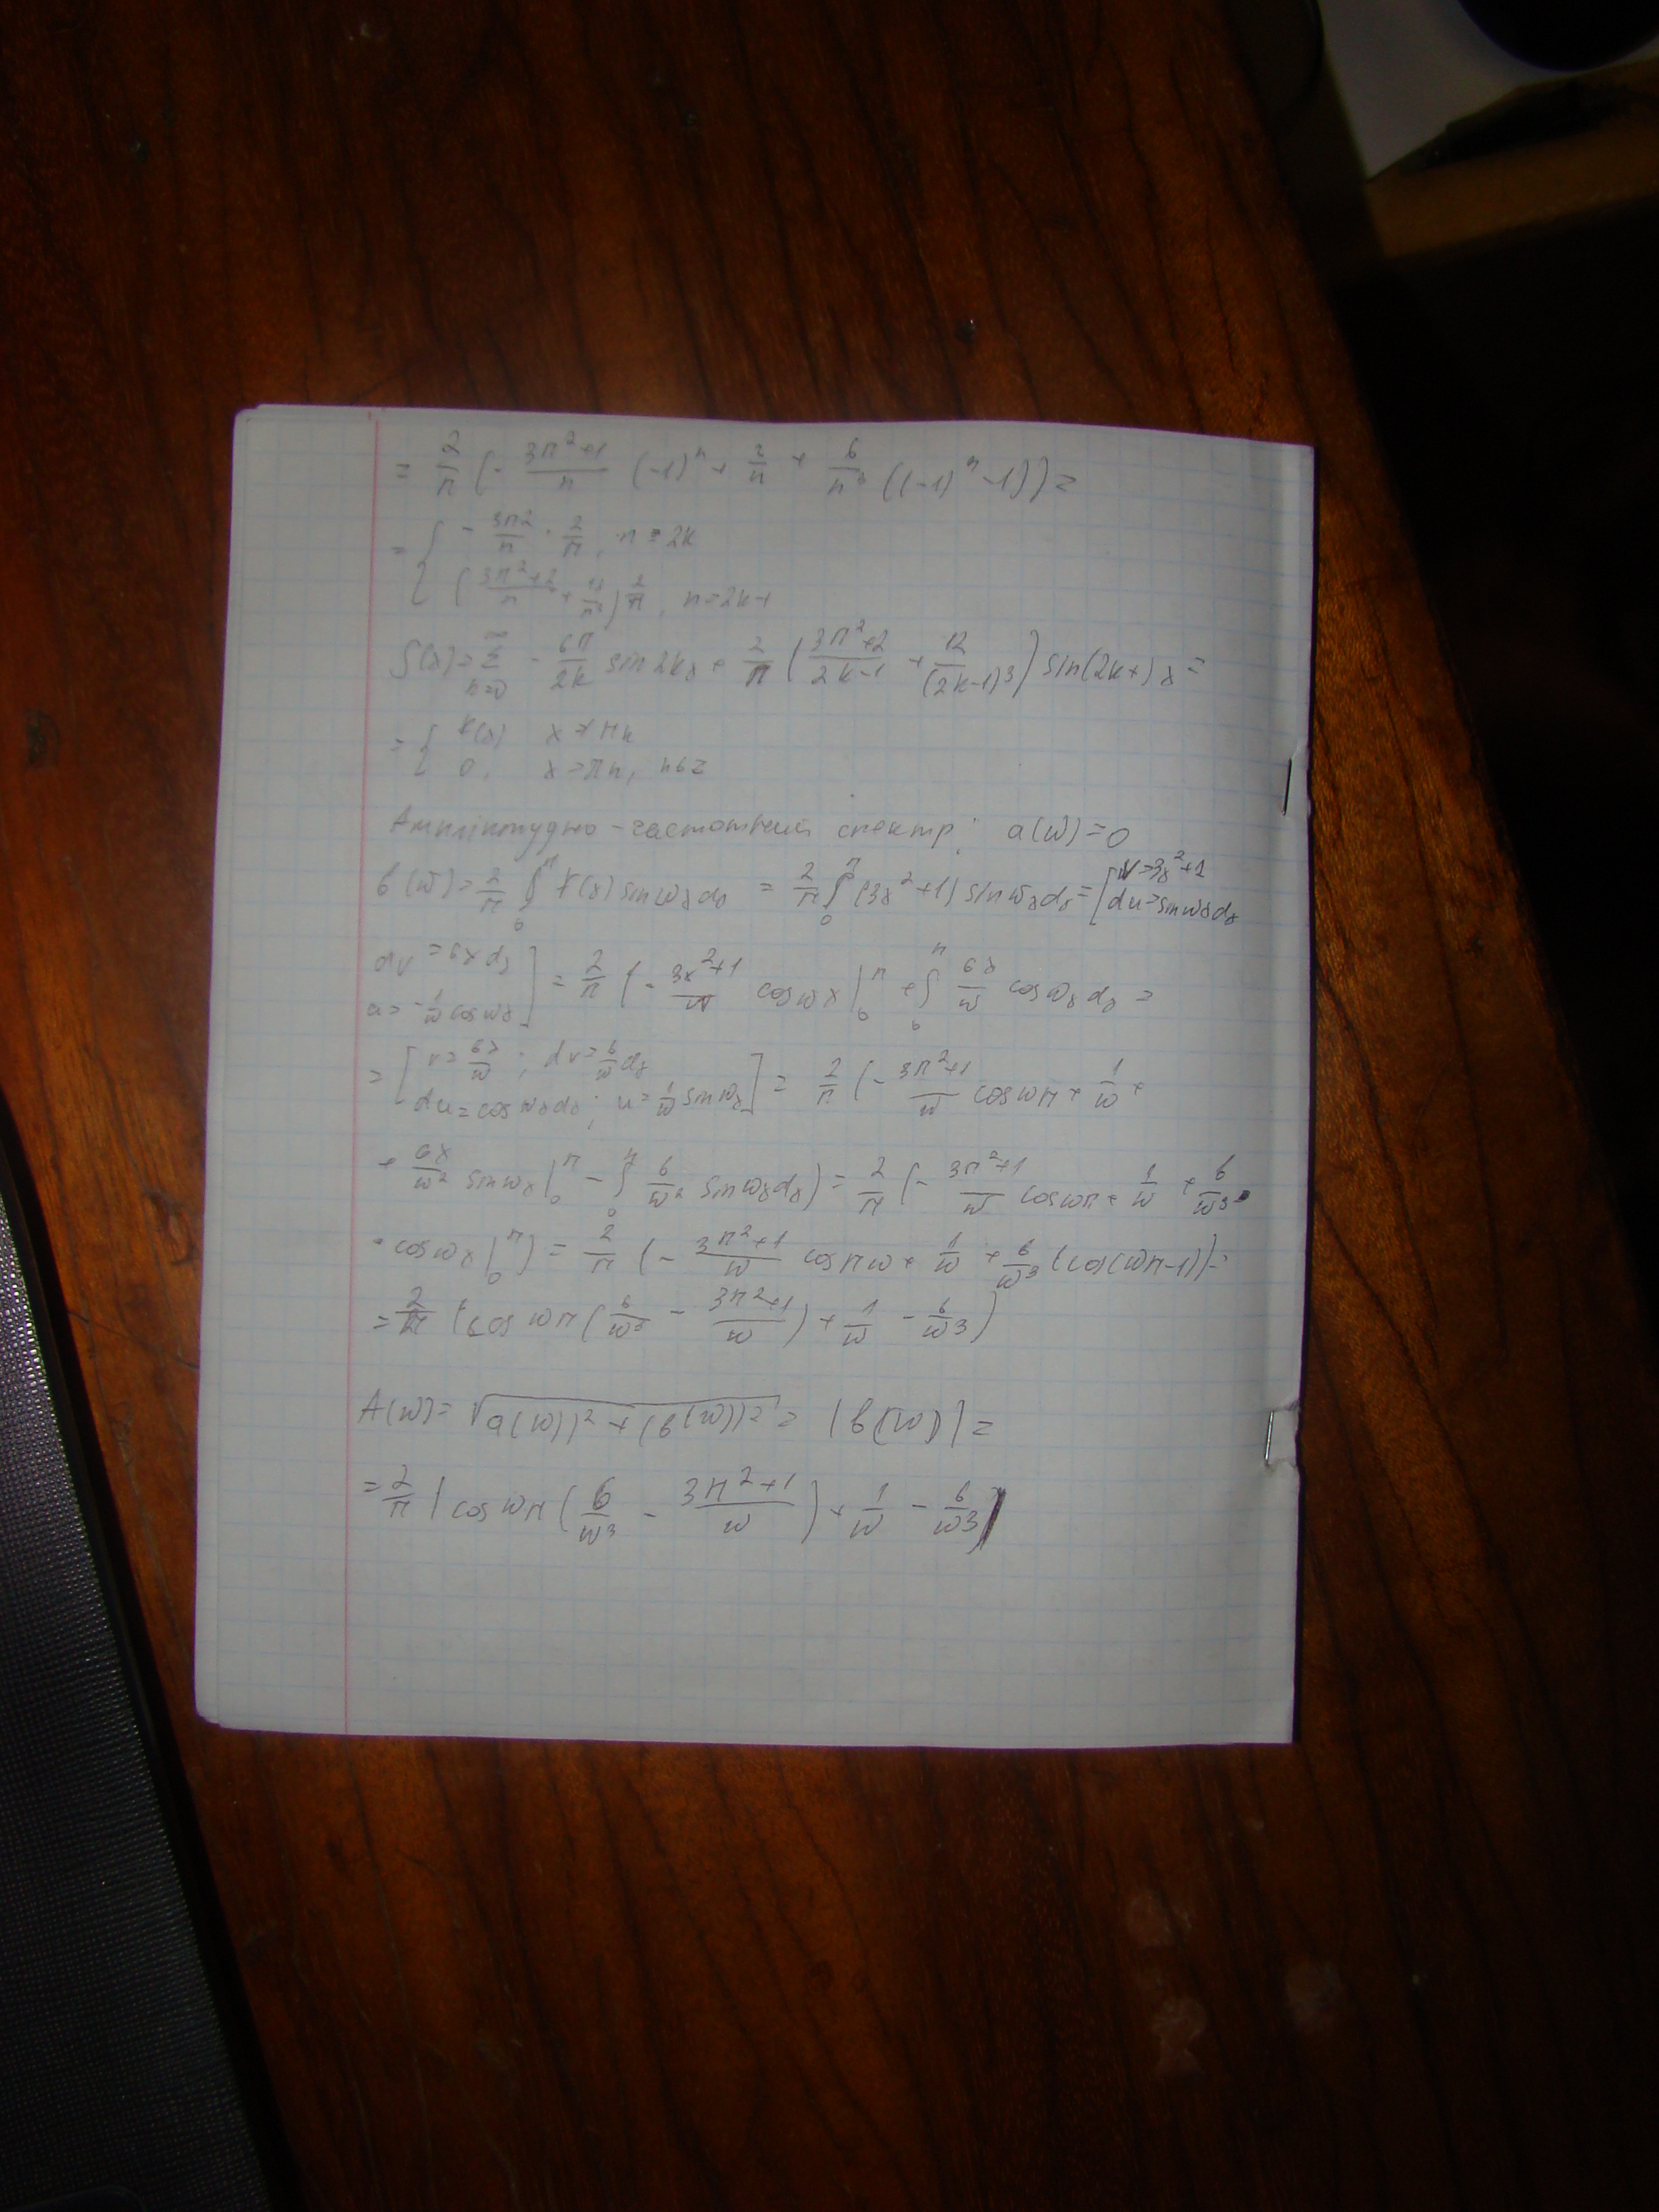 = 2/π (- (3π²+1)/n (-1)ⁿ + 2/n + 6/n³ ((-1)ⁿ-1)) =
= { - 3π2/n · 2/π, n = 2k
{ ((3π²+2)/n + 12/n³) 2/π, n=2k-1
S(x) = ∞Σn=0 - 6π/2k sin 2kx + 2/π ((3π²+2)/(2k-1) + 12/(2k-1)³) sin(2k+)x =
= { f(x) x ≠ πn
{ 0, x = πn, n∈Z
Амплітудно - частотний спектр: a(w) = 0
b(w) = 2/π ∫₀^π f(x) sin wx dx = 2/π ∫₀^π (3x²+1) sin wx dx = [ v=3x²+1
du = sin wx dx
dv = 6x dx
u = -1/w cos wx ] = 2/π (- (3x²+1)/w cos wx |₀^π + ∫₀^π 6x/w cos wx dx =
= [ v = 6x/w ; dv = 6/w dx
du = cos wx dx ; u = 1/w sin wx ] = 2/π (- (3π²+1)/w cos wπ + 1/w +
+ 6x/w² sin wx |₀^π - ∫₀^π 6/w² sin wx dx) = 2/π (- (3π²+1)/w cos wπ + 1/w + 6/w³ ·
· cos wx |₀^π) = 2/π (- (3π²+1)/w cos πw + 1/w + 6/w³ (cos(wπ-1)) =
= 2/π (cos wπ (6/w³ - (3π²+1)/w) + 1/w - 6/w³)
A(w) = √(a(w))² + (b(w))² = |b(w)| =
= 2/π | cos wπ (6/w³ - (3π²+1)/w) + 1/w - 6/w³ |